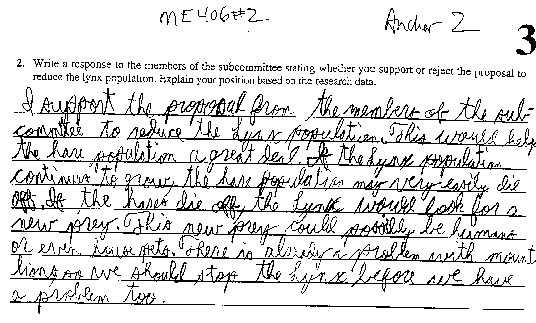 ME406#2.
Anchor 2
3
2. Write a response to the members of the subcommittee stating whether you support or reject the proposal to
reduce the lynx population. Explain your position based on the research data.
I support the proposal from the members of the sub-
committee to reduce the Lynx population. This would help
the hare population a great deal. If the Lynx population
continues to grow, the hare population may very easily die
off. If the hares die off, the Lynx would look for a
new prey. This new prey could possibly be humans
or even house pets. There is already a problem with mount
lions so we should stop the Lynx before we have
a problem too.